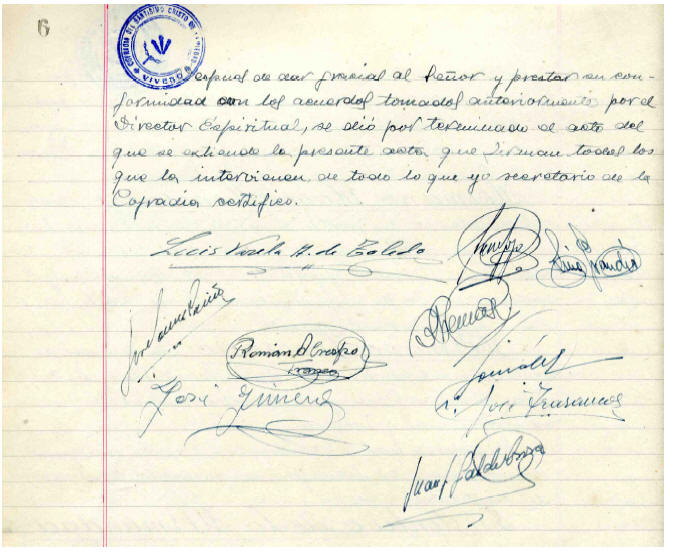 6
COFRADIA DEL SANTISIMO CRISTO DE
VIVERO
espues de dar gracias al Señor y prestar su con-
formidad con los acuerdos tomados anteriormente por el
Director Espiritual, se dió por terminado el acto del
que se extiende la presente acta, que firman todos los
que la intervienen, de todo lo que yo secretario de la
Cofradia certifico.
Luis Varela A. de Toledo
José
Roman A Crespo
Franco
José Jimena
González
José Trasancos
Juan J